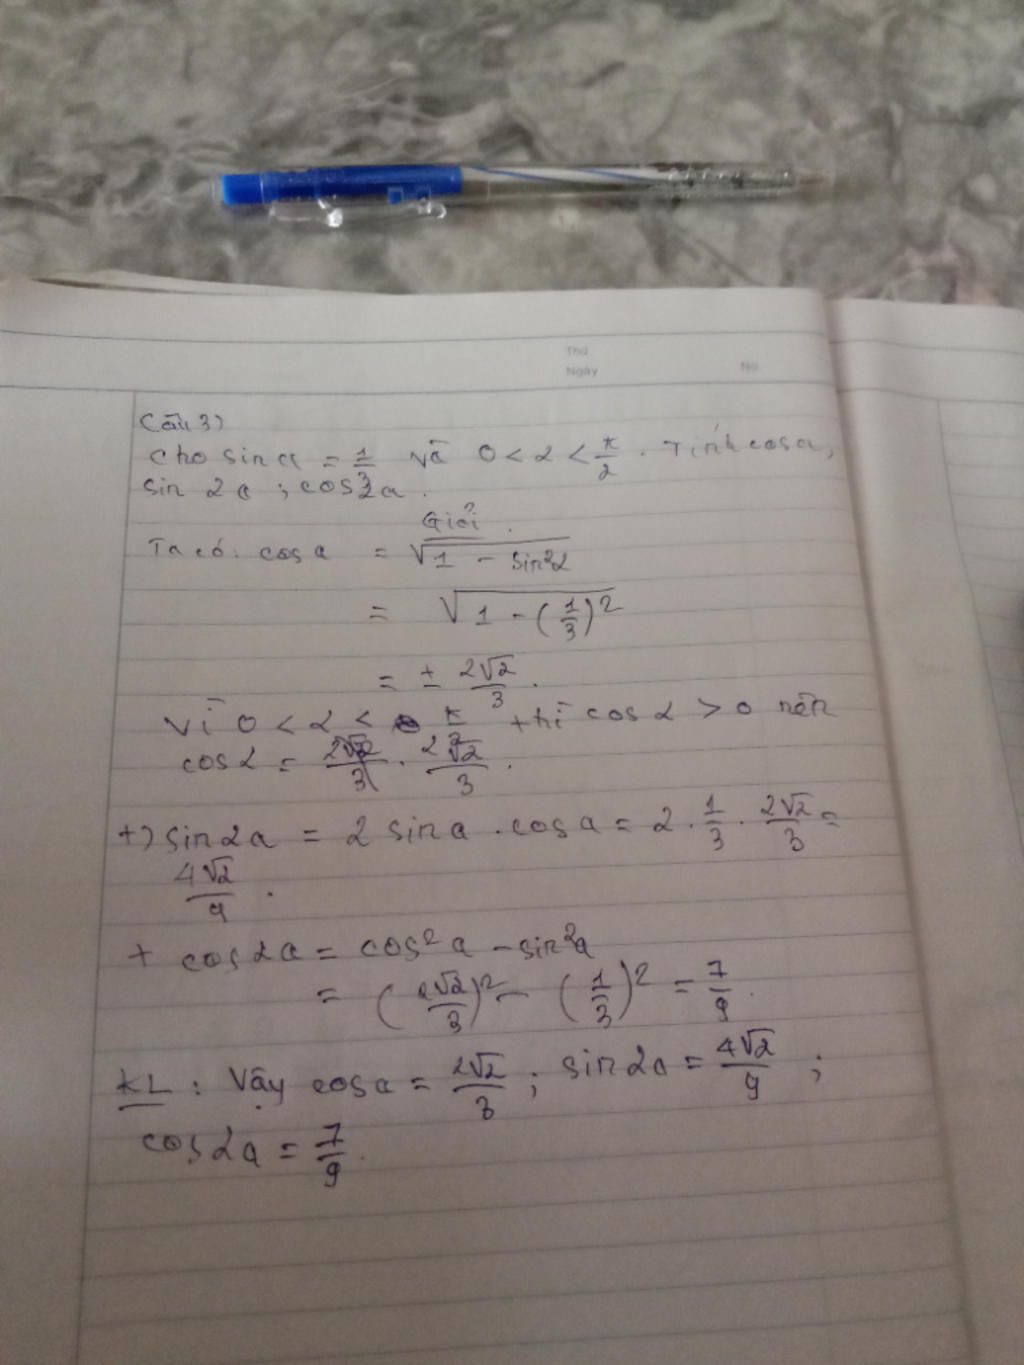 Thứ
Ngày No.
Câu 3)
Cho sin a = 1/3 và 0 < α < π/2 . Tính cos a,
sin 2a ; cos 2a .
Giải .
Ta có: cos a = √(1 - sin²α)
= √(1 - (1/3)²)
= ± 2√2/3 .
Vì 0 < α < π/2 thì cos α > 0 nên
cos α = 2√2/3 .
+) sin 2a = 2 sin a . cos a = 2 . 1/3 . 2√2/3 =
4√2/9 .
+ cos 2a = cos² a - sin² a
= (2√2/3)² - (1/3)² = 7/9 .
KL : Vậy cos a = 2√2/3 ; sin 2a = 4√2/9 ;
cos 2a = 7/9 .